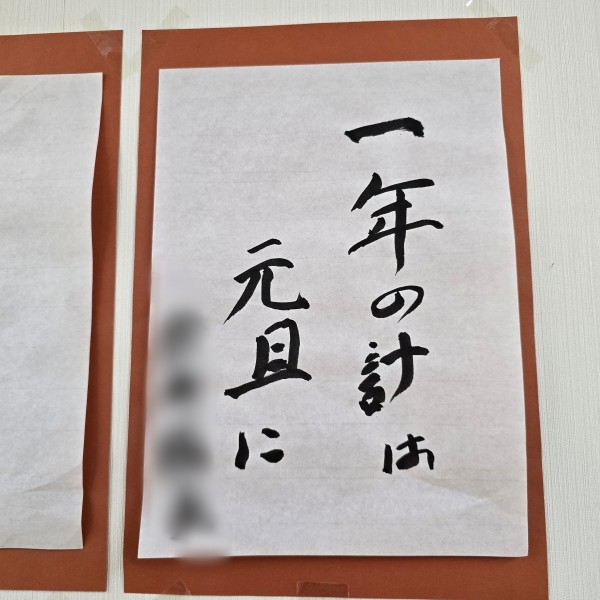 一年の計は
元旦に